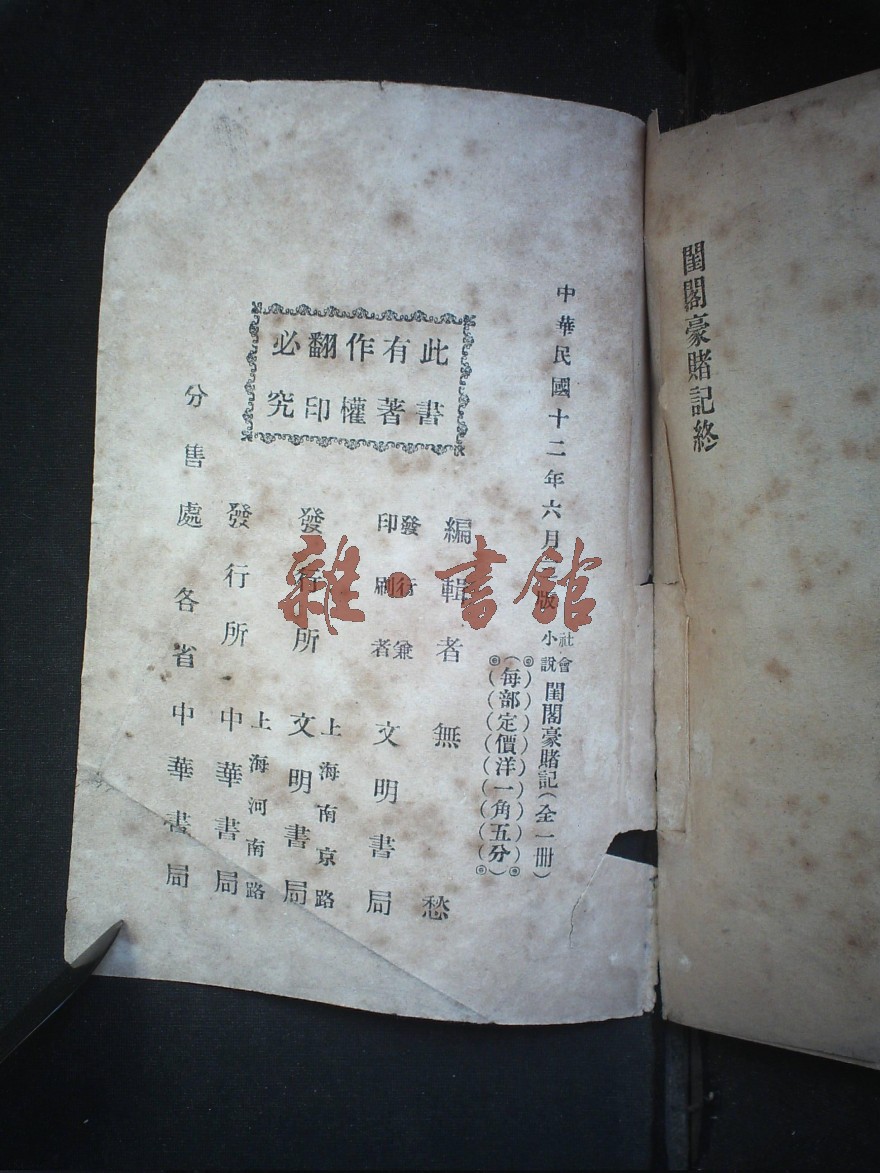 閨閣豪賭記終
中華民國十二年六月 版 社會小說 閨閣豪賭記(全一册)
(每部定價洋一角五分)
編輯者 無愁
發行兼印刷者 文明書局
發行所 上海南京路 文明書局
發行所 上海河南路 中華書局
分售處 各省中華書局
此書有著作權翻印必究
雜·書館